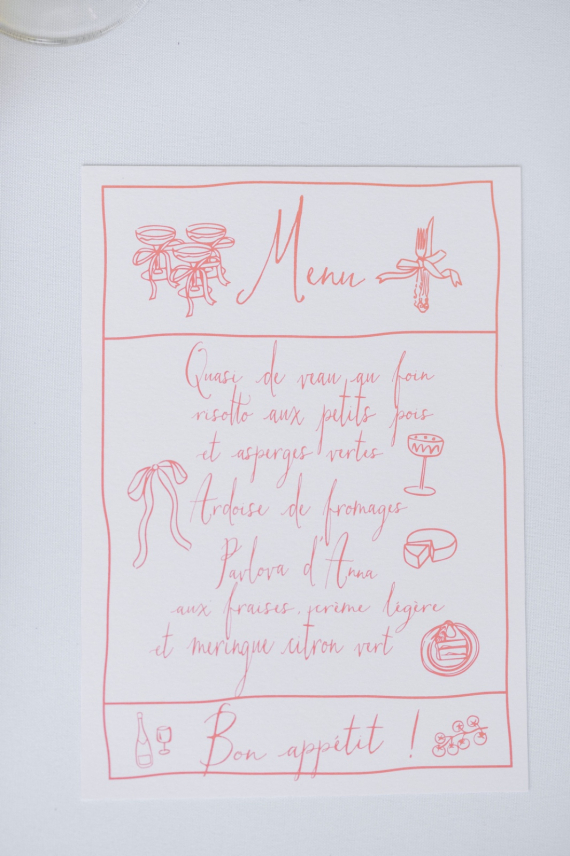 Menu
Quasi de veau au foin
risotto aux petits pois
et asperges vertes
Ardoise de fromages
Pavlova d'Anna
aux fraises, crème légère
et meringue citron vert
Bon appétit !